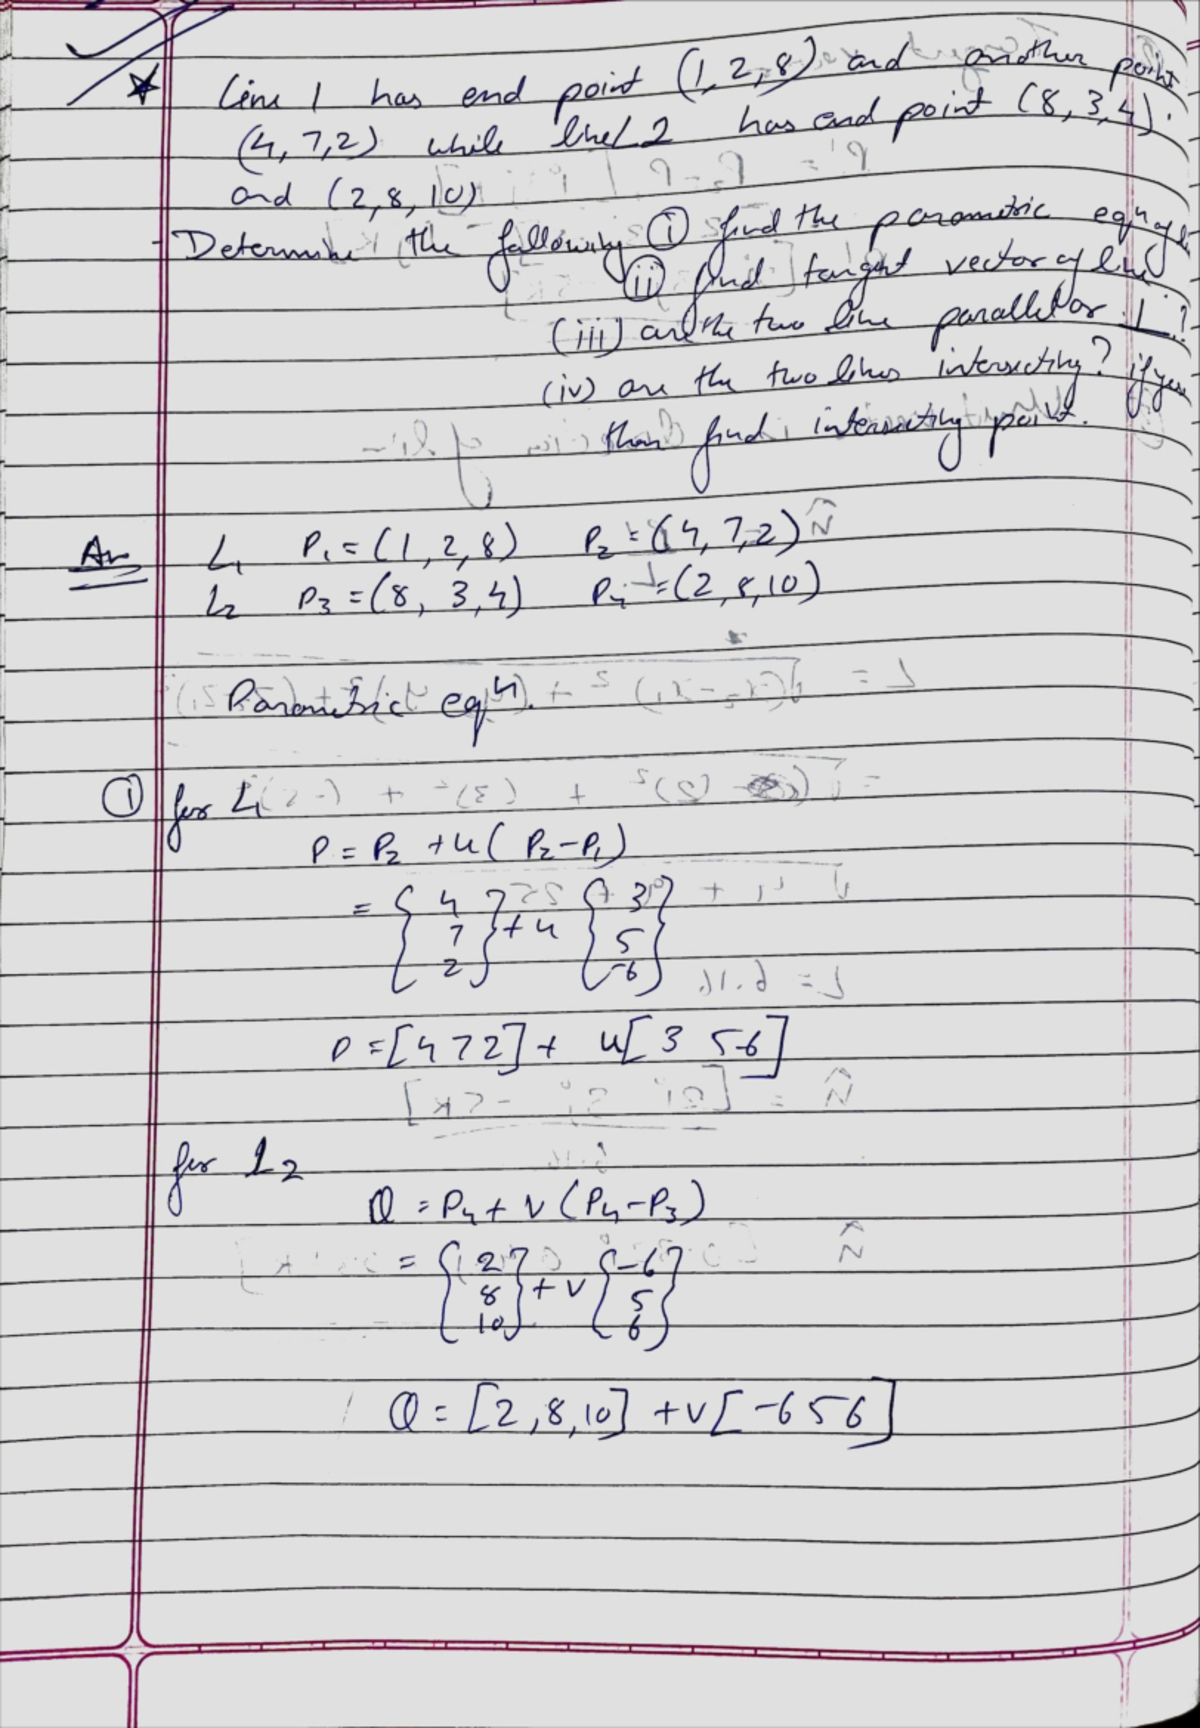 Line 1 has end point (1, 2, 8) and another point
(4, 7, 2) while line 2 has end point (8, 3, 4).
and (2, 8, 10)
- Determine the following (i) find the parametric eqn of
(ii) find tangent vector of line
(iii) are the two line parallel or ⊥ ?
(iv) are the two lines intersecting? if yes
than find intersecting point.
Ans L1 P1 = (1, 2, 8) P2 = (4, 7, 2)
L2 P3 = (8, 3, 4) P4 = (2, 8, 10)
Parametric eqn.
(1) for L1
P = P2 + u ( P2 - P1 )
= { 4 7 2 } + u { 3 5 -6 }
P = [4 7 2] + u[ 3 5 -6 ]
for L2
Q = P4 + v (P4 - P3)
= { 2 8 10 } + v { -6 5 6 }
Q = [2, 8, 10] + v [ -6 5 6 ]